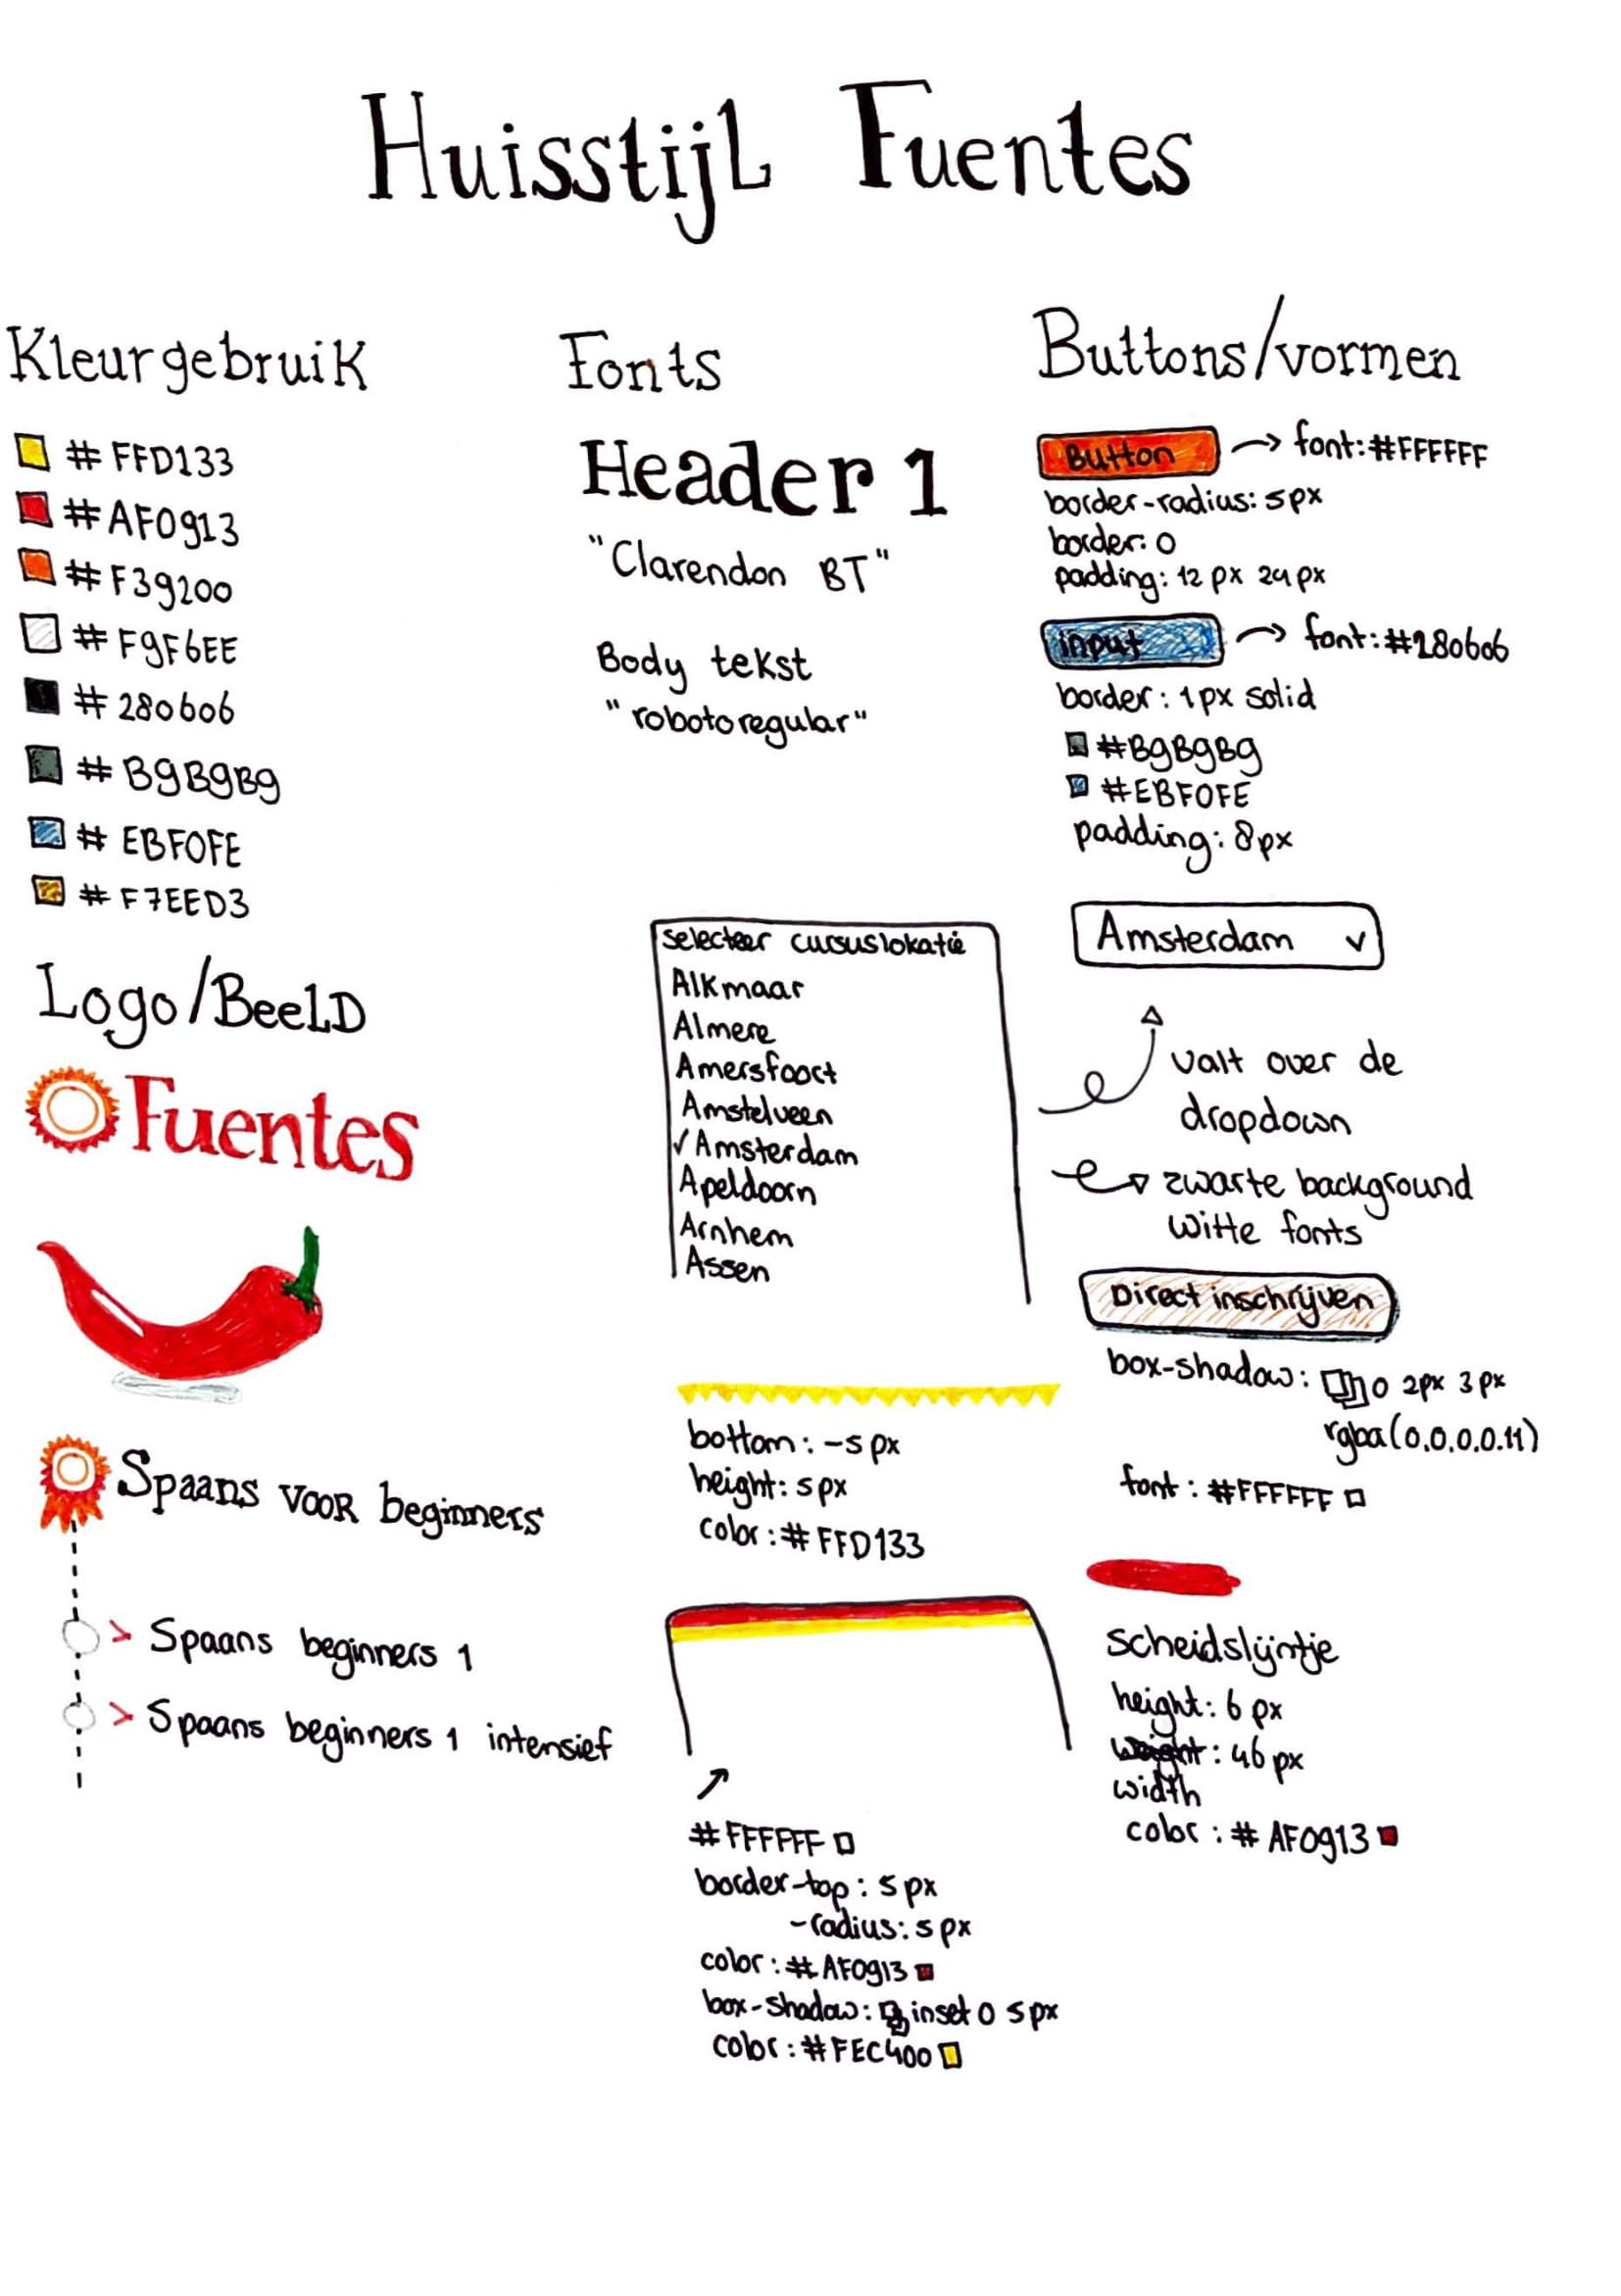 HuisstijL Fuentes
Kleurgebruik
# FFD133
# AF0913
# F39200
# F9F6EE
# 280606
# B9B9B9
# EBF0FE
# F7EED3
Logo/BeelD
Fuentes
Spaans VOOR beginners
> Spaans beginners 1
> Spaans beginners 1 intensief
Fonts
Header 1
"Clarendon BT"
Body tekst
"robotoregular"
selecteer cursuslokatie
Alkmaar
Almere
Amersfoort
Amstelveen
✓Amsterdam
Apeldoorn
Arnhem
Assen
bottom: -5px
height: 5px
color: # FFD133
#FFFFFF
border-top: 5px
-radius: 5px
color: # AF0913
box-shadow: inset 0 5px
color: #FEC400
Buttons/vormen
Button → font: #FFFFFF
border-radius: 5px
border: 0
padding: 12 px 24px
input → font: #280606
border: 1px solid
#B9B9B9
#EBF0FE
padding: 8px
Amsterdam v
valt over de
dropdown
zwarte background
witte fonts
Direct inschrijven
box-shadow: 0 2px 3px
rgba(0.0.0.0.11)
font: #FFFFFF
scheidslijntje
height: 6px
: 46px
width
color: # AF0913